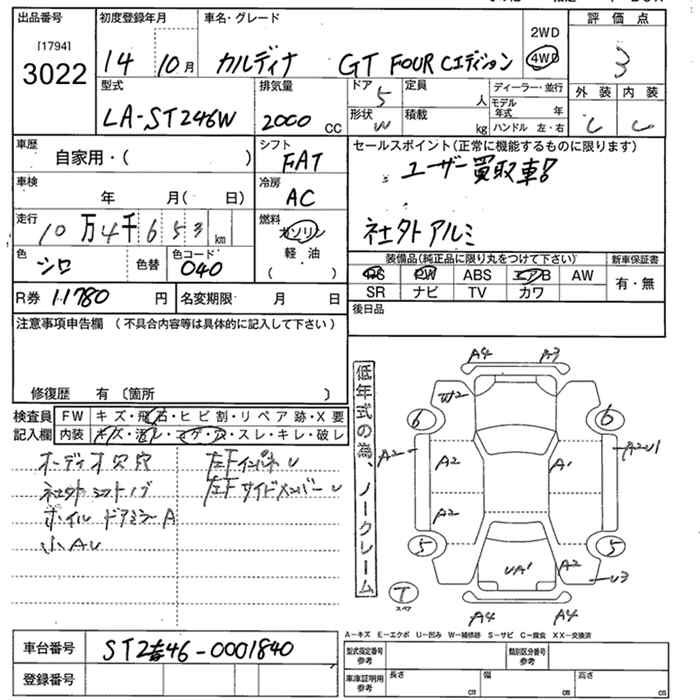 出品番号
[1794]
3022
初度登録年月
14 10月
車名・グレード
カルディナ GT FOUR Cエディション
2WD
4WD
評価点
3
型式
LA-ST246W
排気量
2000 CC
ドア
5
形状
W
定員
人
積載
kg
ディーラー・並行
モデル年式 年
ハンドル 左・右
外装 内装
C C
車歴
自家用・( )
シフト
FAT
車検
年 月( 日)
冷房
AC
走行
10万4千653km
燃料
ガソリン
軽油
( )
色
シロ
色替
色コード
040
R券 11780円
名変期限 月 日
セールスポイント(正常に機能するものに限ります)
ユーザー買取車!!
社外アルミ
装備品(純正品に限り丸をつけて下さい)
新車保証書
PS PW ABS エアB AW
SR ナビ TV カワ
有・無
後日品
注意事項申告欄(不具合内容等は具体的に記入して下さい)
修復歴 有〔箇所 〕
検査員記入欄
FW キズ・飛石・ヒビ割・リペア跡・X要
内装 キズ・汚レ・コゲ・穴・スレ・キレ・破レ
オーディオ欠 穴
左Fインパネ U
社外シフトノブ
左Fサイドメンバー U
ホイル ドアミラーA
小AU
低年式の為、ノークレーム
A4 A3
W2
6 6
A2 A2U1
A2 A1
A2
5 5
UA1 A2
U3
T
スペア
A4 A4
A−キズ E−エクボ U−凹み W−補修跡 S−サビ C−腐食 XX−交換済
車台番号 ST246-0001840
登録番号
型式指定番号
参考
類別区分番号
参考
車庫証明用
参考
長さ cm
幅 cm
高さ cm